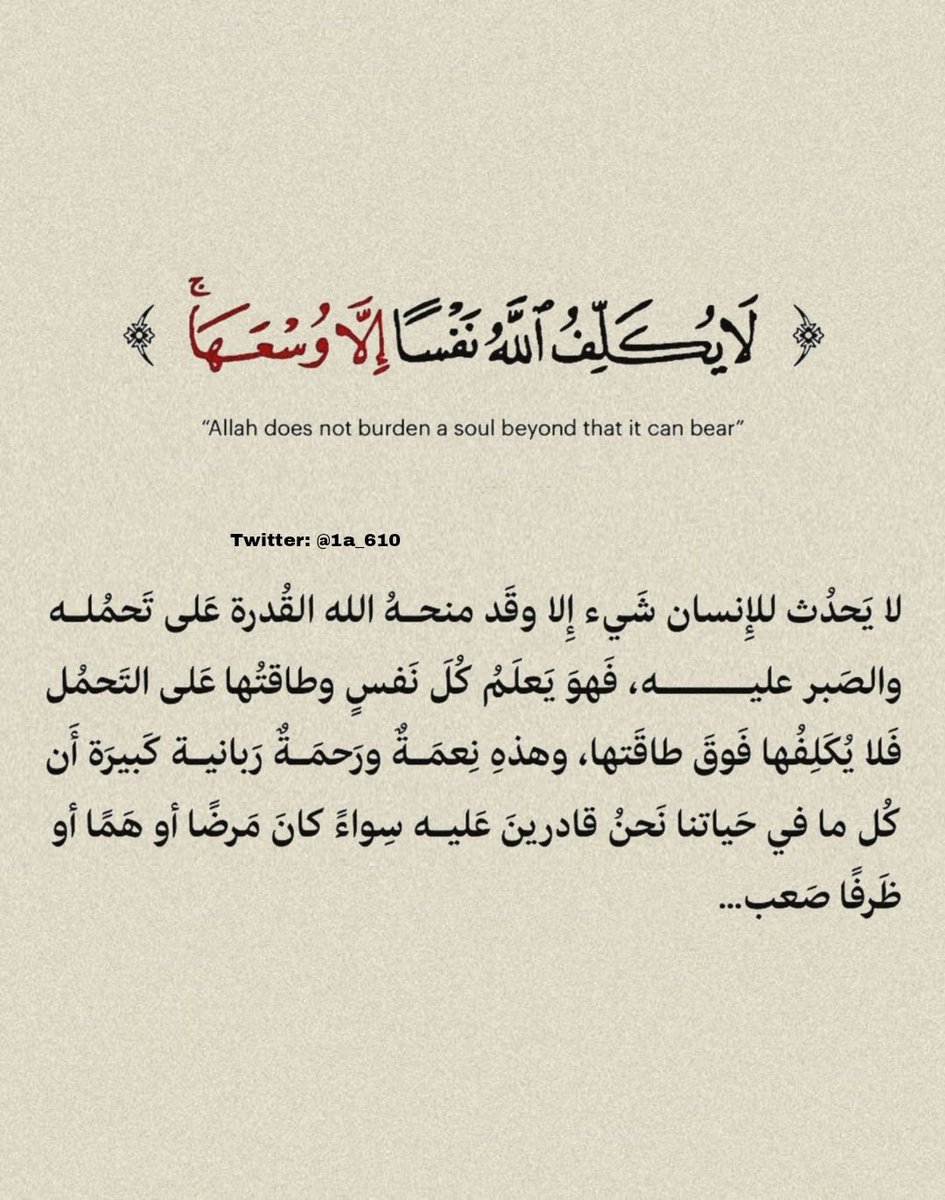 ﴿ لَا يُكَلِّفُ ٱللَّهُ نَفْسًا إِلَّا وُسْعَهَاۚ ﴾
“Allah does not burden a soul beyond that it can bear”
Twitter: @1a_610
لا يَحدُث للإِنسان شَيء إِلا وقَد منحـهُ الله القُدرة عَلى تَحمُلـه
والصَبر عليـــــــه، فَهوَ يَعلَمُ كُلَ نَفسٍ وطاقتُها عَلى التَحمُل
فَلا يُكَلِفُها فَوقَ طاقَتها، وهذهِ نِعمَـةٌ ورَحمَـةٌ رَبانيـة كَبيرَة أَن
كُل ما في حَياتنا نَحنُ قادرينَ عَليـه سِواءً كانَ مَرضًا أو هَمًا أو
ظَرفًا صَعب...